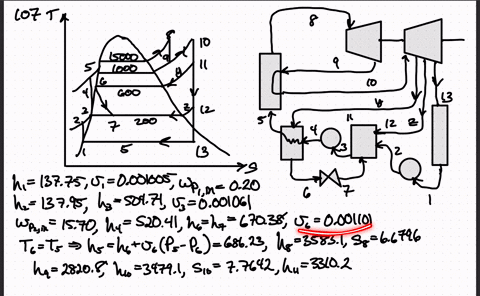 CO7 T
8
10
15000
9
5
1000
11
8
6
600
4
2
200
3
12
7
1
5
13
s
8
9
10
11
13
5
4
3
11
12
2
6
7
1
h₁ = 137.75, v₁ = 0.001005, wp₁,in = 0.20
h₂ = 137.95, h₃ = 504.71, v₃ = 0.001061
wp₂,in = 15.70, h₄ = 520.41, h₆ = h₇ = 670.38, v₆ = 0.001101
T₆ = T₅ ⇒ h₅ = h₆ + v₆(P₅ - P₆) = 686.23, h₈ = 3583.1, s₈ = 6.6796
h₉ = 2820.8, h₁₀ = 3479.1, s₁₀ = 7.7642, h₁₁ = 3310.2